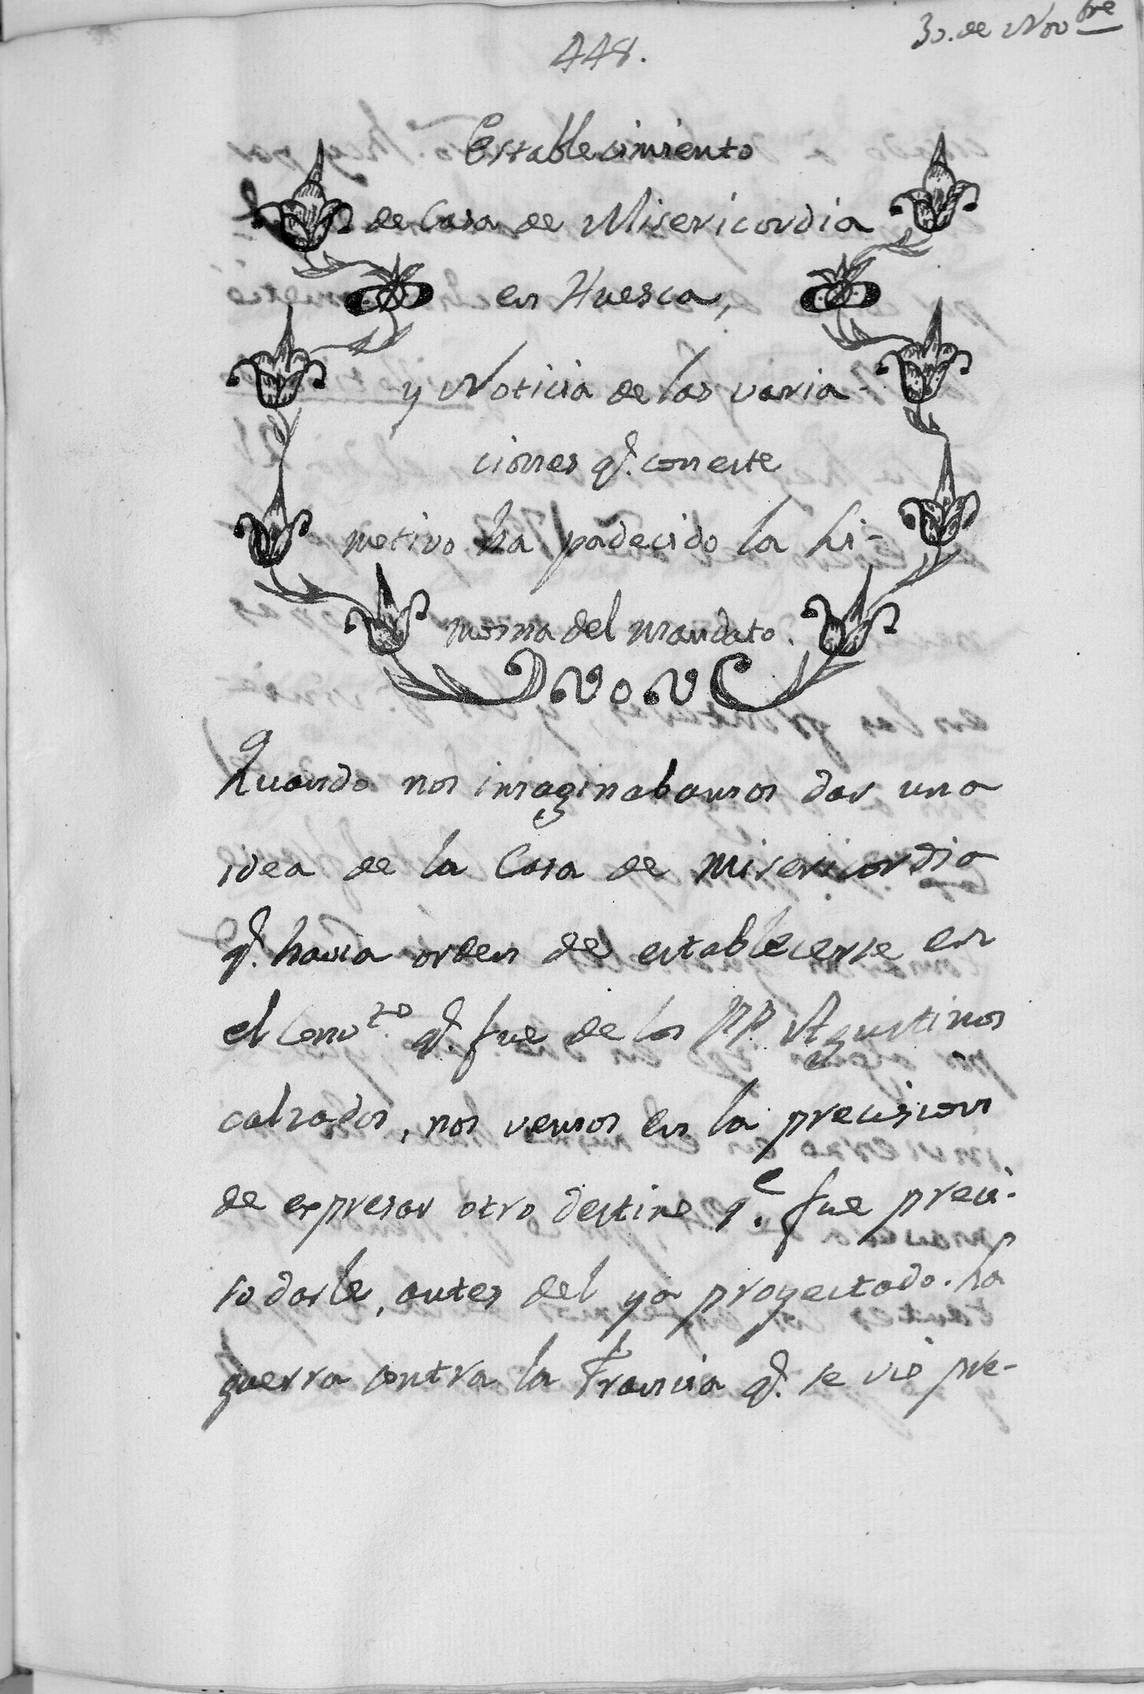 30. de Nov.bre
448.
Establecimiento
de Casa de Misericordia
en Huesca,
y Noticia de las varia-
ciones q.e con este
motivo ha padecido la li-
mosna del mandato.
Quando nos imaginabamos dar una
idea de la Casa de Misericordia
q.e havia orden de establecerse en
el Conv.to q.e fue de los PP. Agustinos
calzados, nos vemos en la precision
de expresar otro destino q.e fue preci-
so darle, antes del ya proyectado. La
guerra contra la Francia q.e se vio pre-